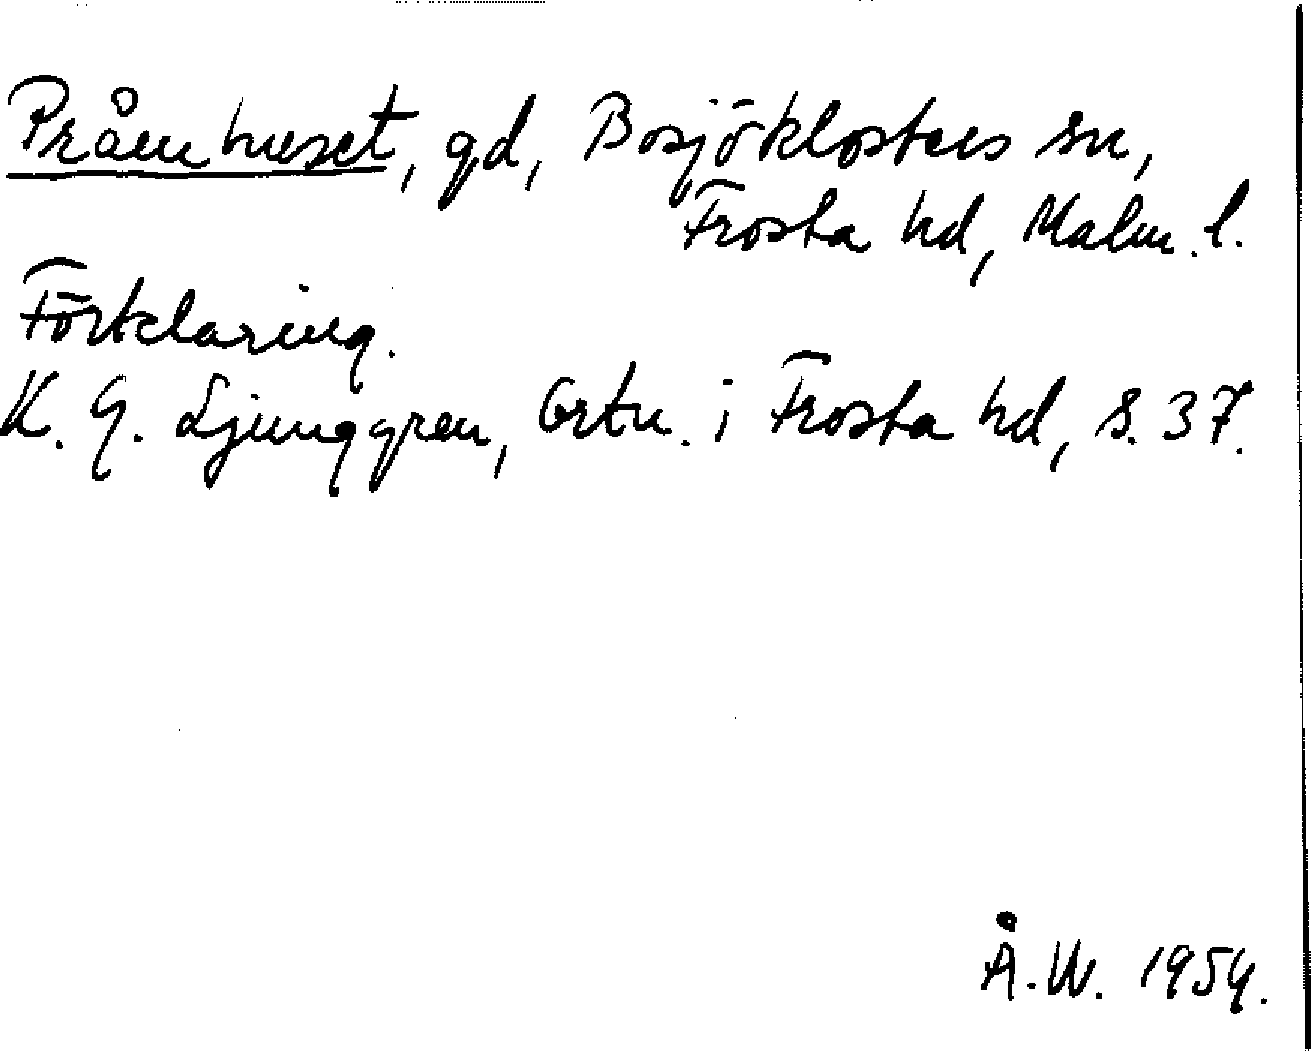 Pråmhuset, gd, Bosjöklosters sn,
Frosta hd, Malm. l.
Förklaring.
K. G. Ljunggren, Ortn. i Frosta hd, s. 37.
Å. W. 1954.